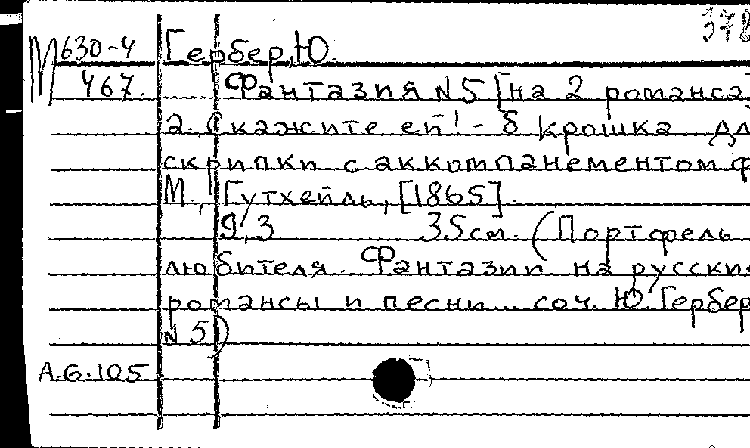 378
М 630-4 Гербер, Ю.
467. Фантазия N 5 [на 2 романса]
а. Скажите ей! - б Крошка Дл
скрипки с аккомпанементом ф
М., Гутхейль, [1865].
9, 3 35см. (Портфель
любителя. Фантазии на русски
романсы и песни... соч. Ю. Гербер
N 5)
А.6.105